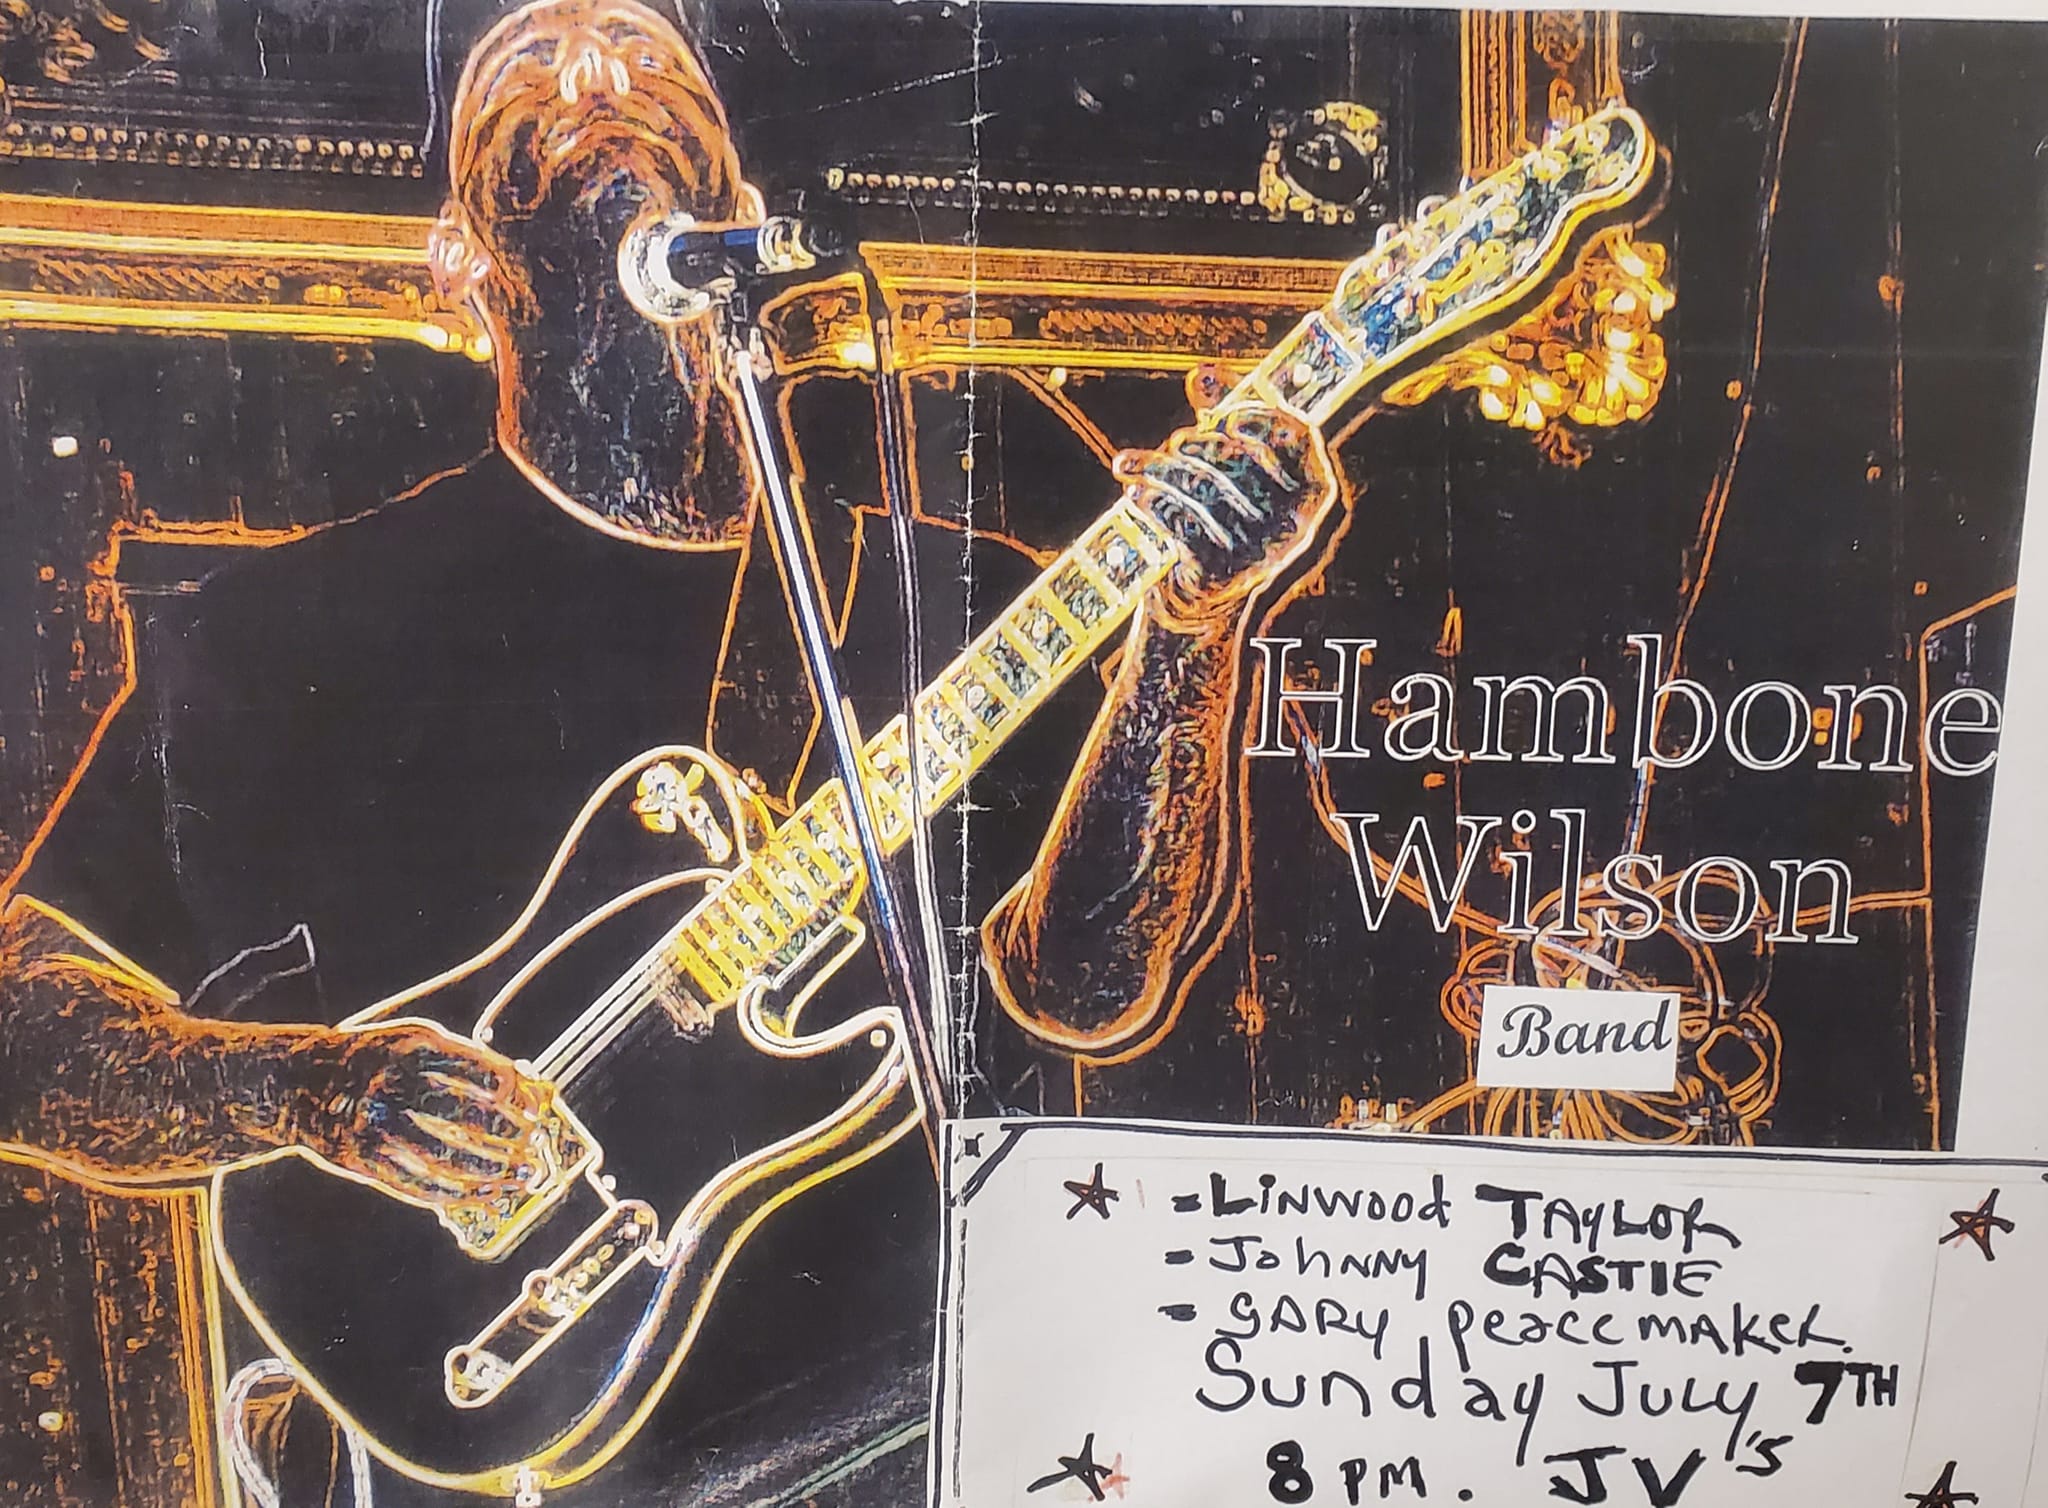 Hambone
Wilson
Band
- Linwood Taylor
- Johnny Castle
- Gary Peacemaker.
Sunday July 7TH
8 PM. JV's